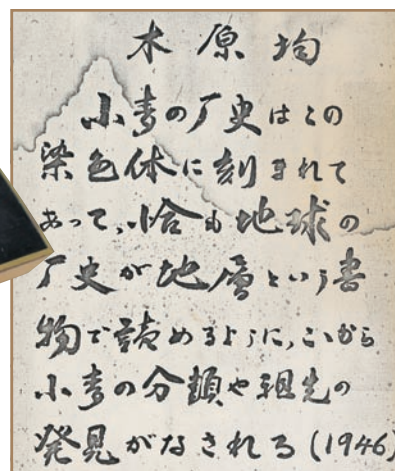 木原均
小麦の厂史はこの
染色体に刻まれて
あって、恰も地球の
厂史が地層という書
物で読めるように、こゝから
小麦の分類や祖先の
発見がなされる (1946)